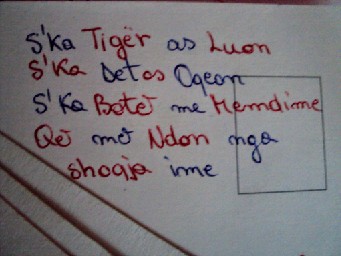 S'Ka Tigër as Luon
S'Ka Det as Oqeon
S'Ka Botë me Memdime
Që më Ndon nga
shoqja ime